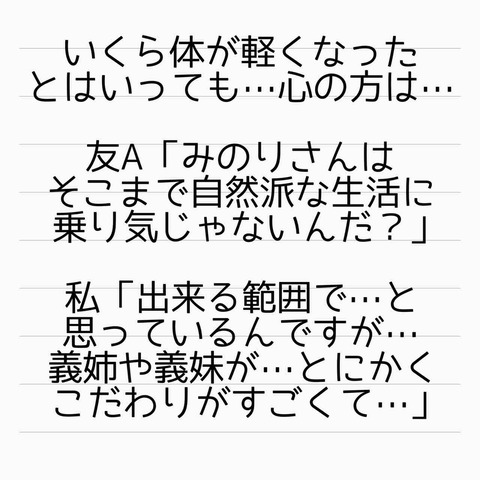 いくら体が軽くなった
とはいっても…心の方は…
友A「みのりさんは
そこまで自然派な生活に
乗り気じゃないんだ？」
私「出来る範囲で…と
思っているんですが…
義姉や義妹が…とにかく
こだわりがすごくて…」